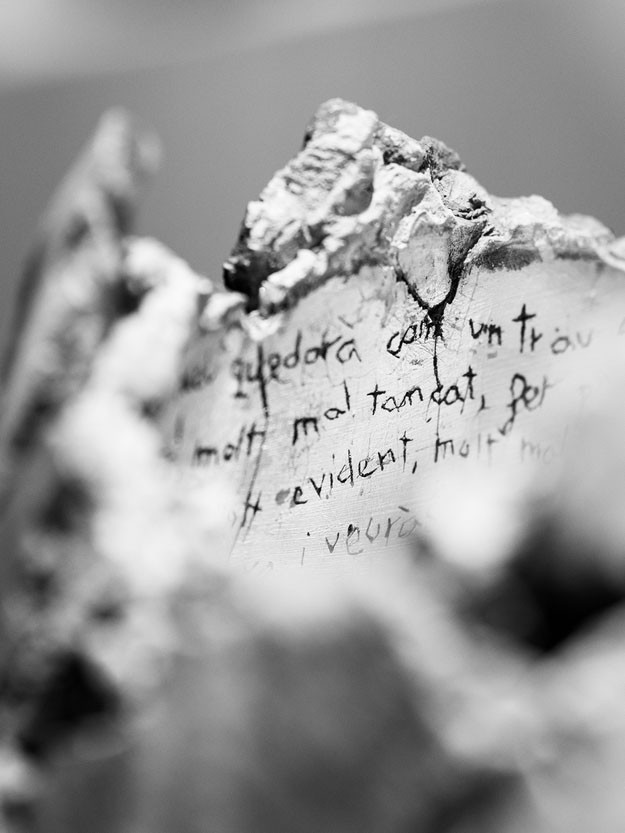 quedara com un trau
molt mal tancat, per
evident, molt
i veurà